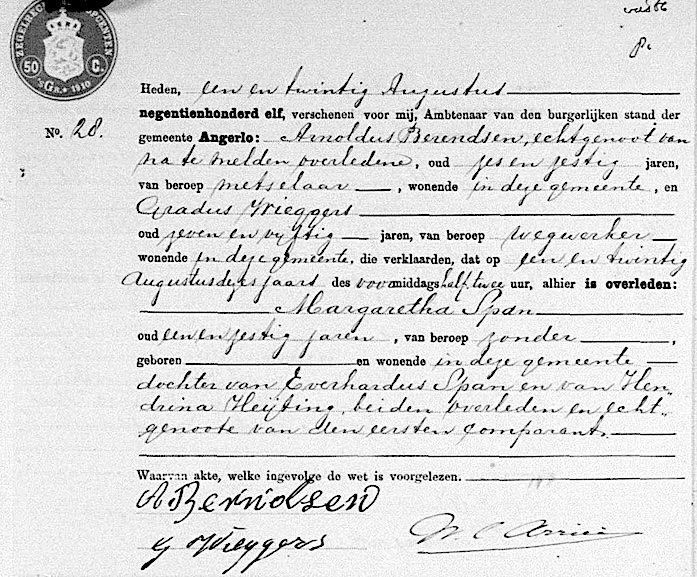 ZEGELRECHT OPCENTEN
50 C.
GR. 1910
8.
Heden, een en twintig Augustus
negentienhonderd elf, verschenen voor mij, Ambtenaar van den burgerlijken stand der
No. 28.
gemeente Angerlo: Arnoldus Berendsen, echtgenoot van
na te melden overledene, oud zes en zestig jaren,
van beroep metselaar, wonende in deze gemeente, en
Gradus Wieggers
oud zeven en vijftig jaren, van beroep wegwerker
wonende in deze gemeente, die verklaarden, dat op een en twintig
Augustus dezes jaars des voormiddags half twee uur, alhier is overleden:
Margaretha Span
oud een en zestig jaren, van beroep zonder,
geboren en wonende in deze gemeente
dochter van Everhardus Span en van Hen
drina Heijting, beiden overleden en echt
genoote van den eersten comparant.
Waarvan akte, welke ingevolge de wet is voorgelezen.
A Berndsen
G Wieggers